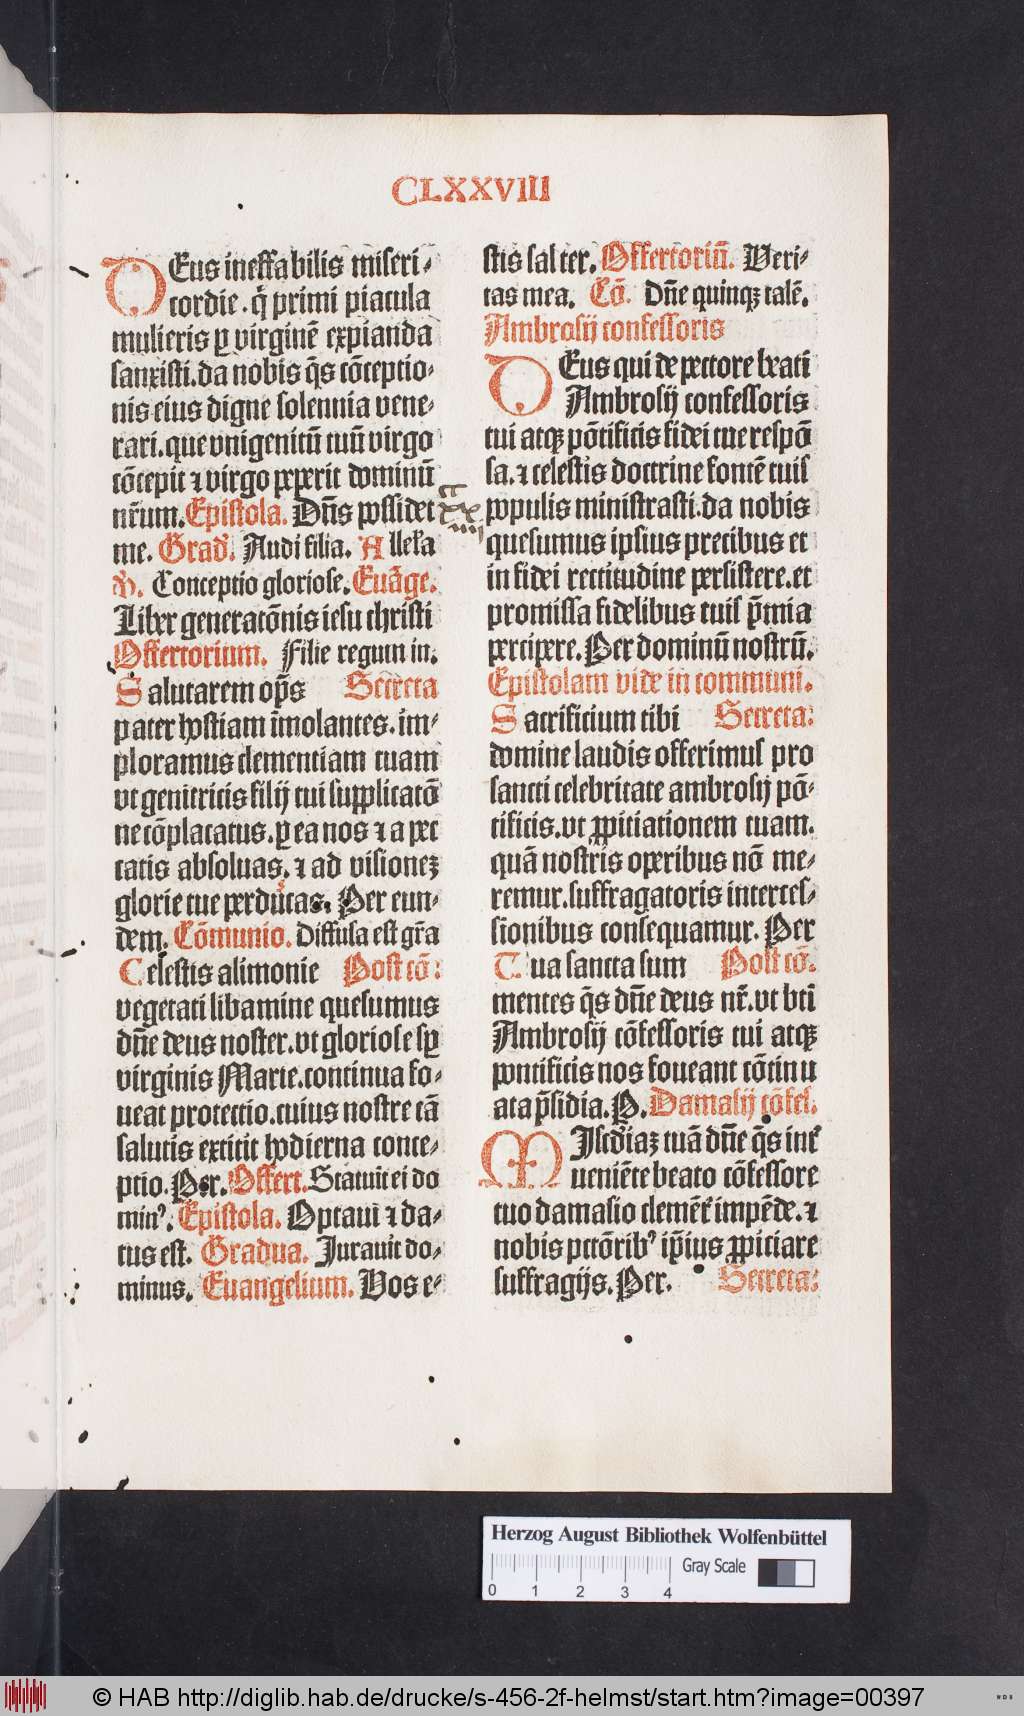 CLXXVIII
DEus ineffabilis miseri-
cordie. q̄ primi piacula
mulieris ꝑ virginē expianda
sanxisti. da nobis q̄s cōceptio-
nis eius digne solennia vene-
rari. que vnigenitū tuū virgo
cōcepit ⁊ virgo peperit dominū
nr̄um. Epistola. Dn̄s possidet
me. Grad̄. Audi filia. Allel̄a
Conceptio gloriose. Euāge.
Liber generatōnis iesu christi
Offertorium. Filie regum in.
Salutarem op̄s Secreta
pater hostiam īmolantes. im-
ploramus clementiam tuam
vt genitricis filij tui supplicatō
ne cōplacatus. ꝑ ea nos ⁊ a pec
catis absoluas. ⁊ ad visionez
glorie tue perdūcas. Per eun-
dem. Cōmunio. Diffusa est gr̄a
Celestis alimonie Post cō:
vegetati libamine quesumus
dn̄e deus noster. vt gloriose sꝑ
virginis Marie. continua fo-
ueat protectio. cuius nostre cā
salutis extitit hodierna conce-
ptio. Per. Offert. Statuit ei do
minꝰ. Epistola. Optaui ⁊ da-
tus est. Gradua. Jurauit do-
minus. Euangelium. Vos e-
stis sal ter. Offertoriū. Veri-
tas mea. Cō. Dn̄e quinqꝫ talē.
Ambrosij confessoris
DEus qui de pectore beati
Ambrosij confessoris
tui atqꝫ pōtificis fidei tue respō
sa. ⁊ celestis doctrine fontē tuis
populis ministrasti. da nobis
quesumus ipsius precibus et
in fidei rectitudine persistere. et
promissa fidelibus tuis p̄mia
percipere. Per dominū nostrū.
Epistolam vide in communi.
Sacrificium tibi Secreta:
domine laudis offerimus pro
sancti celebritate ambrosij pō-
tificis. vt ꝓpitiationem tuam.
quā nostris operibus nō me-
remur. suffragatoris interces-
sionibus consequamur. Per
Tua sancta sum Post cō.
mentes q̄s dn̄e deus nr̄. vt bt̄i
Ambrosij cōfessoris tui atqꝫ
pontificis nos foueant cōtinu
ata p̄sidia. P. Damasij cōfes.
MIscd̄iaz tuā dn̄e q̄s int̄
ueniēte beato cōfessore
tuo damasio clemēt̄ impēde. ⁊
nobis pctōribꝰ ip̄ius ꝓpiciare
suffragijs. Per. Secreta:
Herzog August Bibliothek Wolfenbüttel
0 1 2 3 4 Gray Scale
© HAB http://diglib.hab.de/drucke/s-456-2f-helmst/start.htm?image=00397